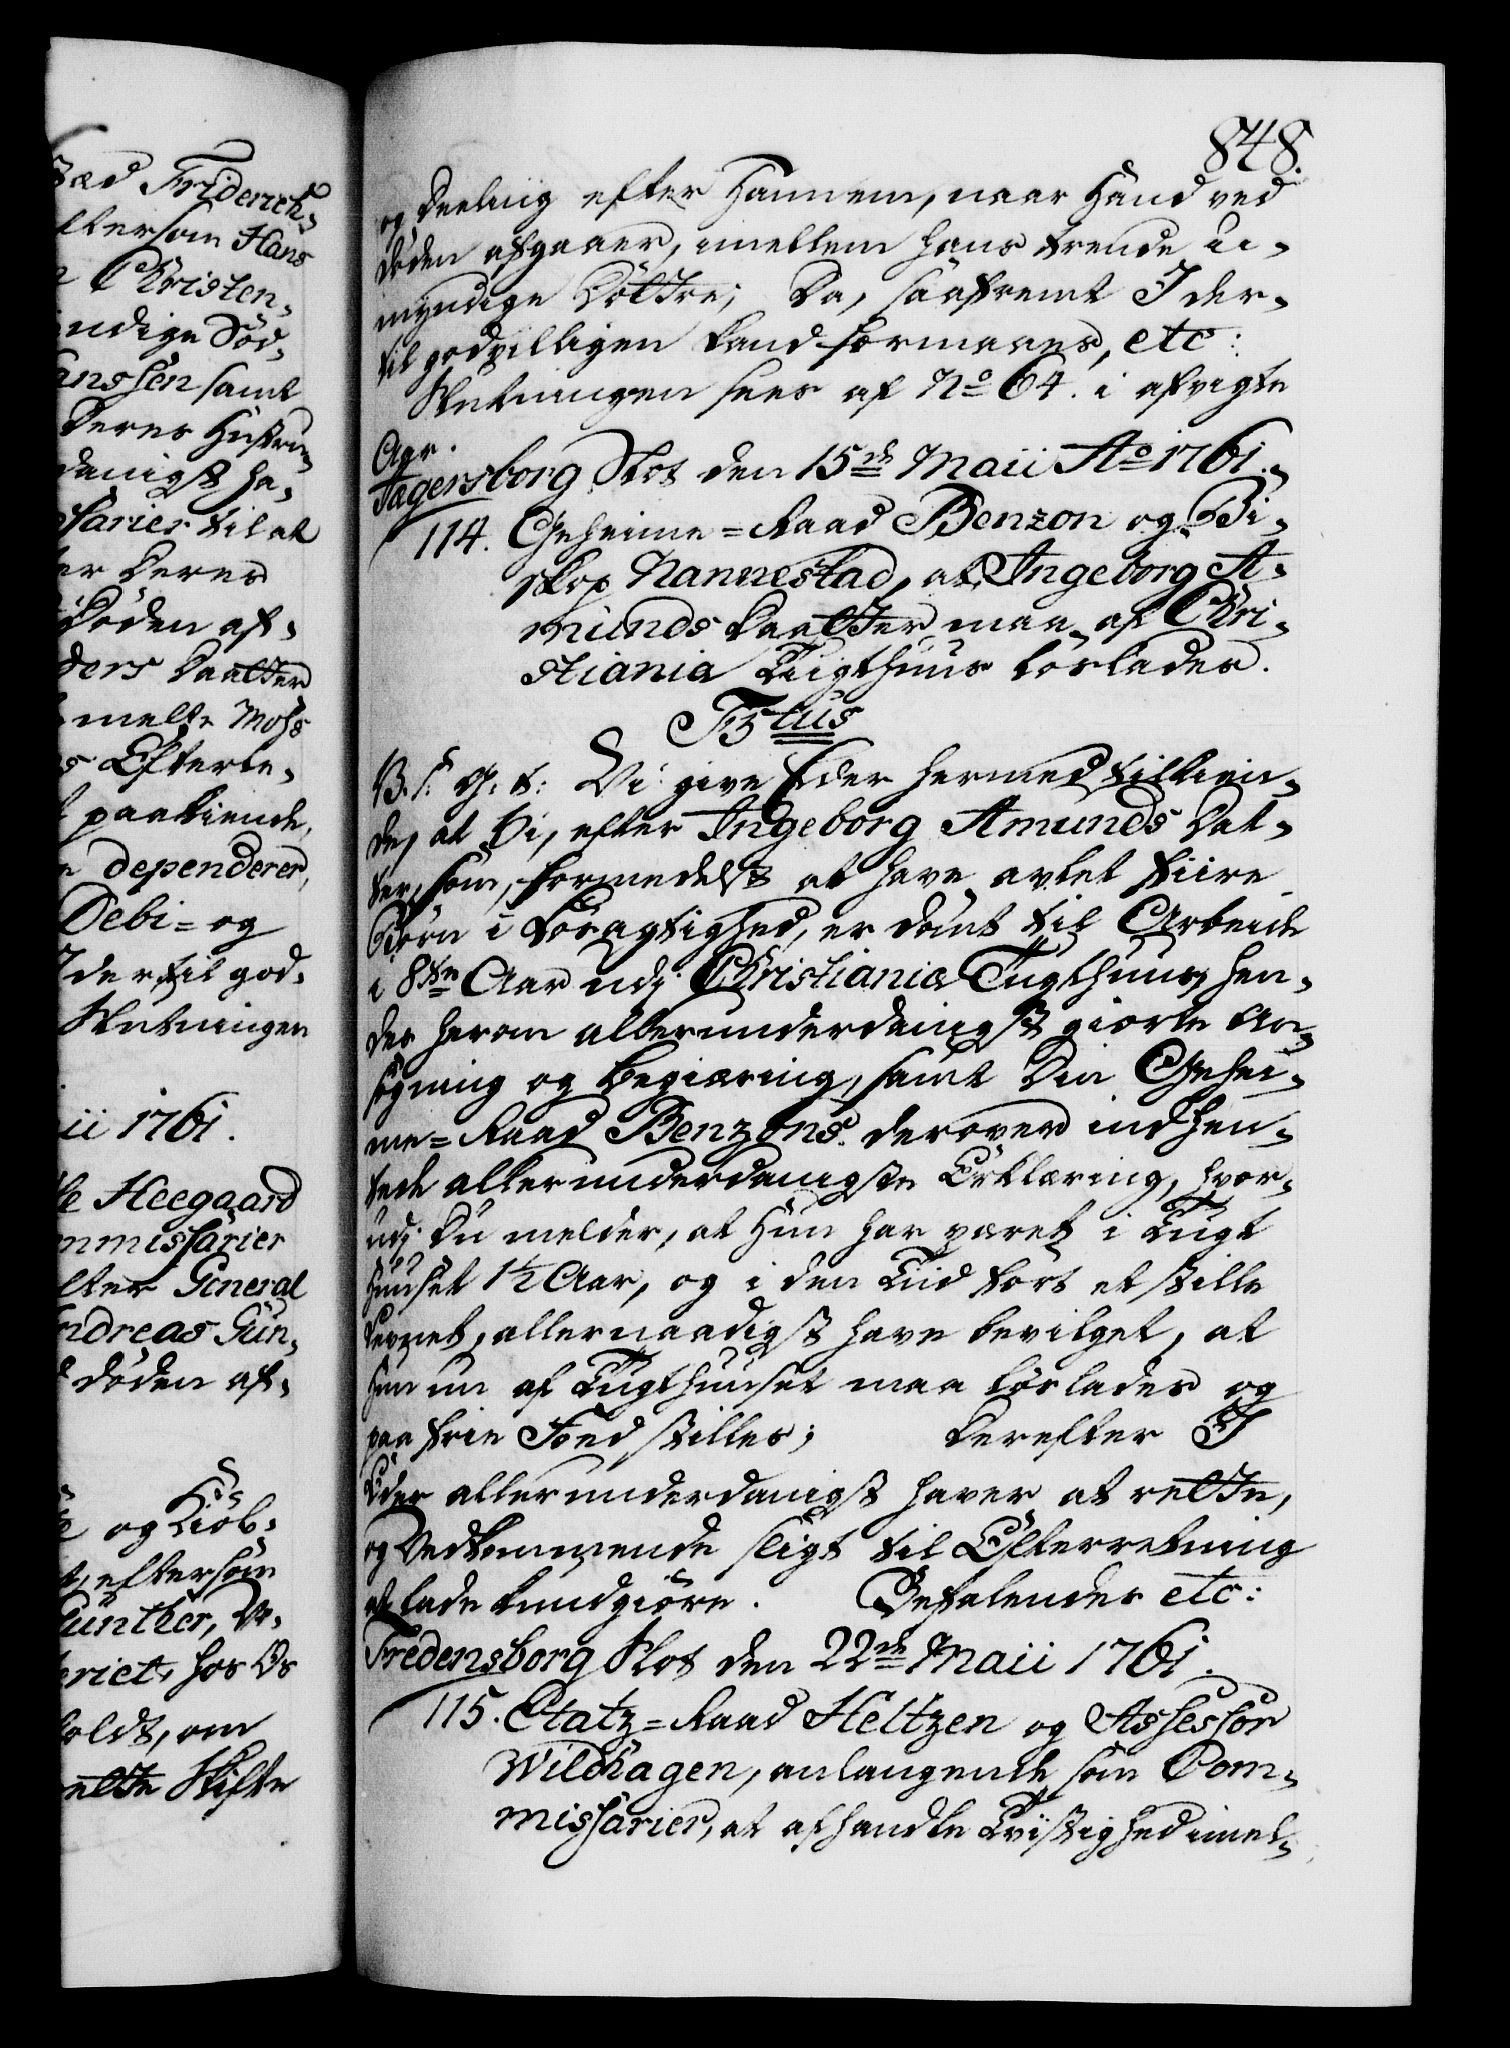 848.
og Deeling efter Hannem, naar Hand ved
Døden afgaaer, imellem hans trende u-
myndige Døttre; Da, saafremt I der-
til godvilligen kand formaaes, etc:
Slutningen sees af No 64. i afvigte
Aar.
Jagersborg Slot den 15de Maii Ao 1761.
114. Geheime=Raad Benzon og Bi-
skop Nannestad, at Ingeborg A-
munds Daatter maa af Chri-
stiania Tugthuus løslades.
F5tus
B. s. G. t: Vi give Eder hermed tilkien-
de, at Vi, efter Ingeborg Amunds Dat-
ter, som, formedelst at have avlet fiire
Børn i Løsagtighed, er dømt til Arbeide
i 8te Aar udj Christiania Tugthuus, hen-
des herom allerunderdanigst giorte An-
søgning og Begiæring, samt Din Gehei-
me=Raad Benzons derover indhen-
tede allerunderdanigste Erklæring, hvor-
udj Du melder, at Hun har været i Tugt
huuset 1½ Aar, og i den Tiid ført et stille
Levnet, allernaadigst have bevilget, at
hun nu af Tugthuuset maa løslades og
paa frie Foed stilles; Derefter I
Eder allerunderdanigst haver at rette,
og Vedkommende sligt til Efterretning
at lade kundgiøre. Befalendes etc:
Fredensborg Slot den 22de Maii 1761.
115. Etatz=Raad Heltzen og Assessor
Wildhagen, anlangende som Com-
missarier, at afhandle Tvistighed imel-
Friderich-
eftersom Hans
Christen-
ndige Sød-
anssen samt
Deres Hustru-
danigst ha-
sarier til at
er Deres
Døden af-
ders Daatter
melte Moss
Efterle-
paakiende,
dependerer,
Debi= og
I dertil god-
Slutningen
ii 1761.
Heegaard
mmissarier
efter General
ndreas Gün-
døden af-
og Kiøb-
eftersom
Günther, V-
eriet hos Os
oldt, om
ette Skifte